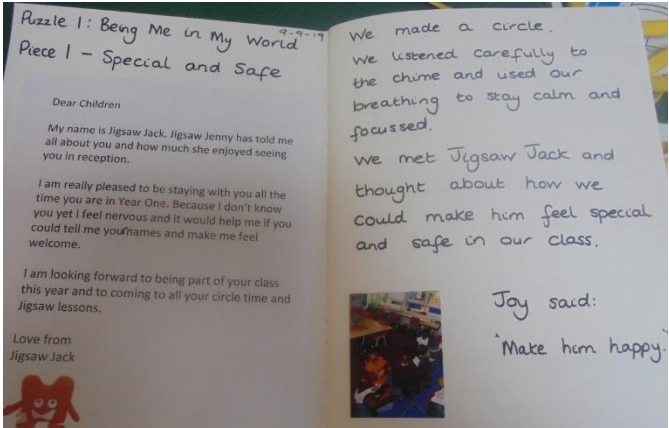 Puzzle 1: Being Me in My World
9-9-19
Piece 1 - Special and Safe
Dear Children
My name is Jigsaw Jack. Jigsaw Jenny has told me
all about you and how much she enjoyed seeing
you in reception.
I am really pleased to be staying with you all the
time you are in Year One. Because I don't know
you yet I feel nervous and it would help me if you
could tell me your names and make me feel
welcome.
I am looking forward to being part of your class
this year and to coming to all your circle time and
Jigsaw lessons.
Love from
Jigsaw Jack
We made a circle.
We listened carefully to
the chime and used our
breathing to stay calm and
focussed.
We met Jigsaw Jack and
thought about how we
could make him feel special
and safe in our class.
Joy said:
"Make him happy."